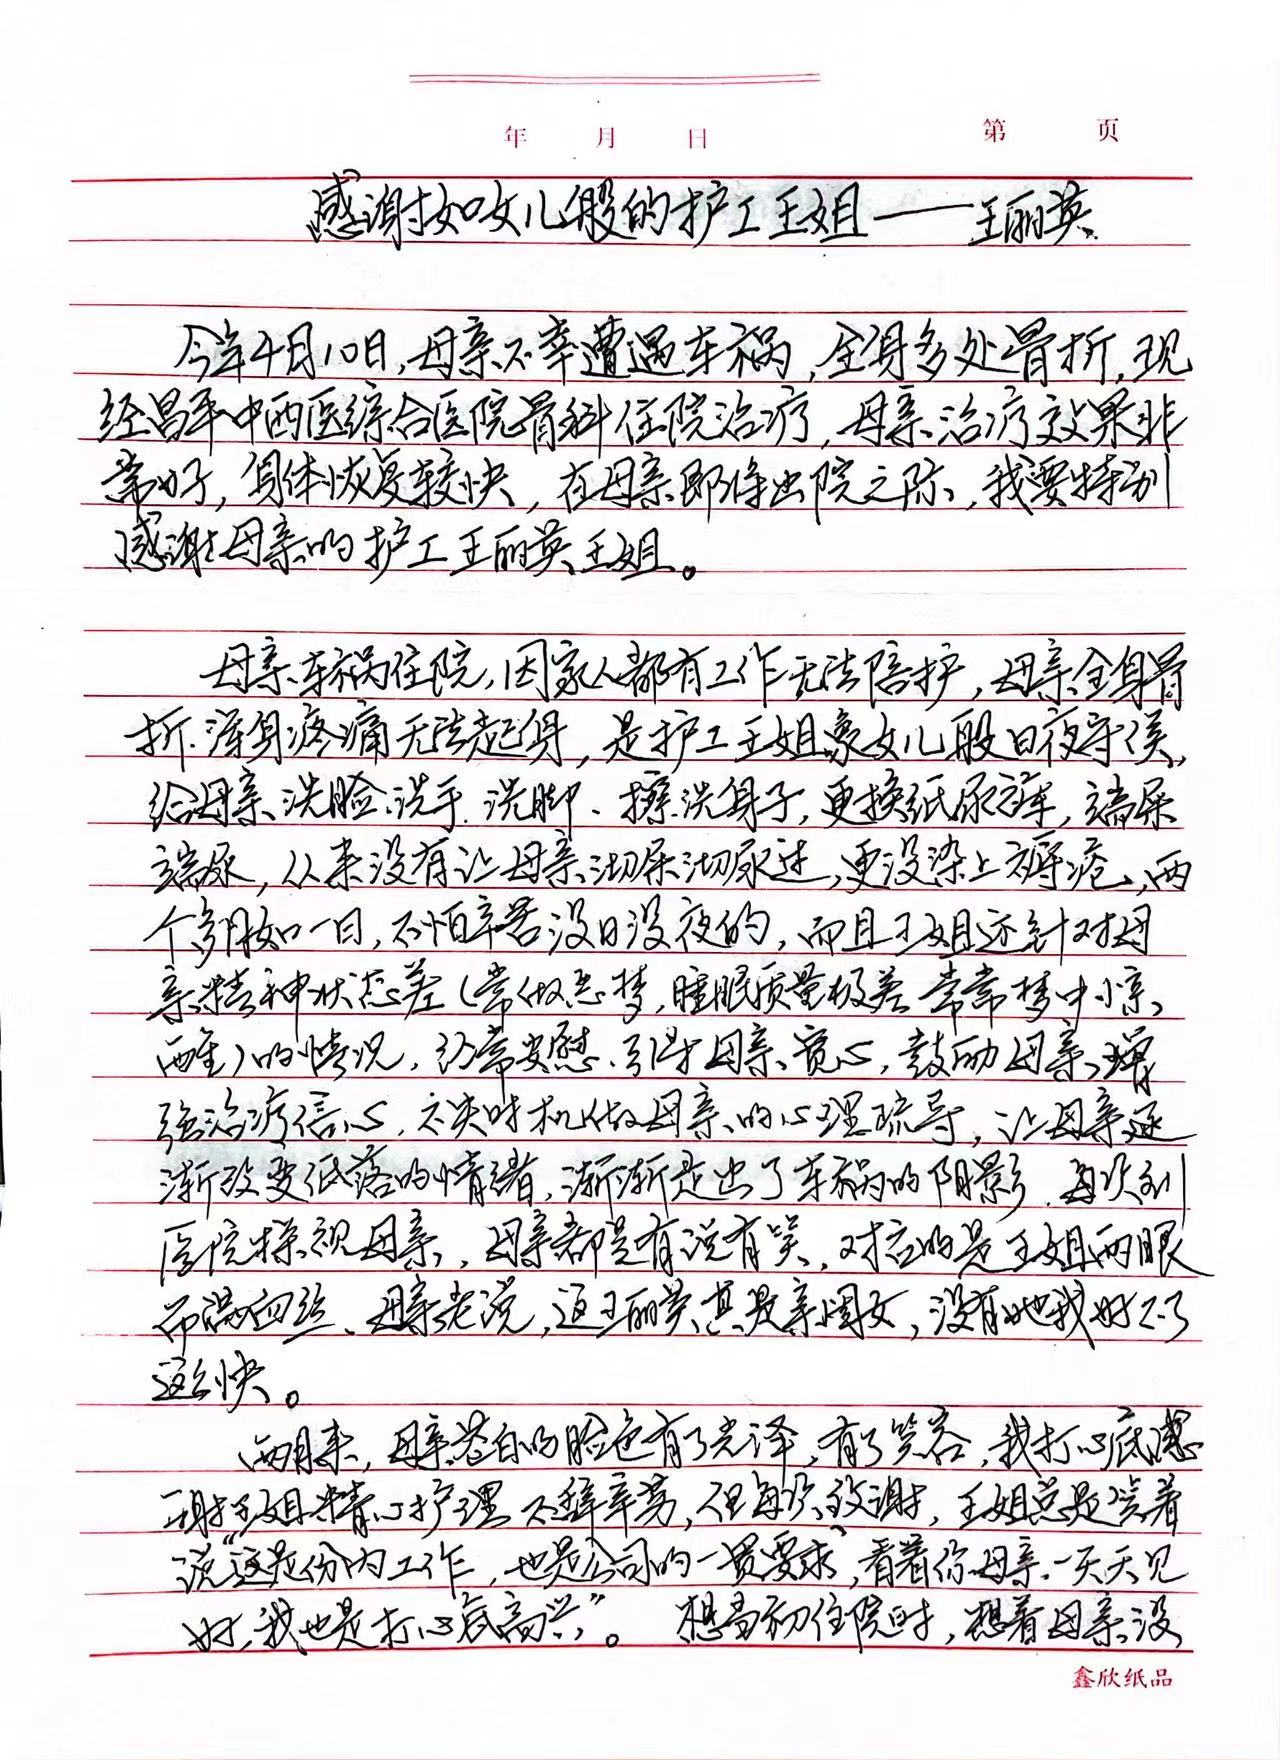 年 月 日 第 页
感谢如女儿般的护工王姐——王丽英
今年4月10日,母亲不幸遭遇车祸,全身多处骨折,现
经昌平中西医综合医院骨科住院治疗,母亲治疗效果非
常好,身体恢复较快,在母亲即将出院之际,我要特别
感谢母亲的护工王丽英王姐。
母亲车祸住院,因家人都有工作无法陪护,母亲全身骨
折.浑身疼痛无法起身,是护工王姐象女儿般日夜守候,
给母亲洗脸、洗手、洗脚、擦洗身子,更换纸尿裤,端屎
端尿,从来没有让母亲沏屎沏尿过,更没染上褥疮,两
个多月如一日,不怕辛苦没日没夜的,而且王姐还针对母
亲精神状态差(常做恶梦,睡眠质量极差常常梦中惊
醒)的情况,经常安慰、引得母亲宽心,鼓励母亲增
强治疗信心,不失时机做母亲的心理疏导,让母亲逐
渐改变低落的情绪,渐渐走出了车祸的阴影.每次到
医院探视母亲,母亲都是有说有笑,对应的是王姐两眼
布满血丝、母亲老说,这王丽英真是亲闺女,没有她我好不了
这么快。
两月来,母亲苍白的脸色有了光泽,有了笑容,我打心底感
谢王姐精心护理不辞辛劳,但每次致谢,王姐总是笑着
说“这是份内工作,也是公司的一贯要求”,看着你母亲一天天见
好,我也是打心底高兴”。 想当初住院时,想着母亲没
鑫欣纸品